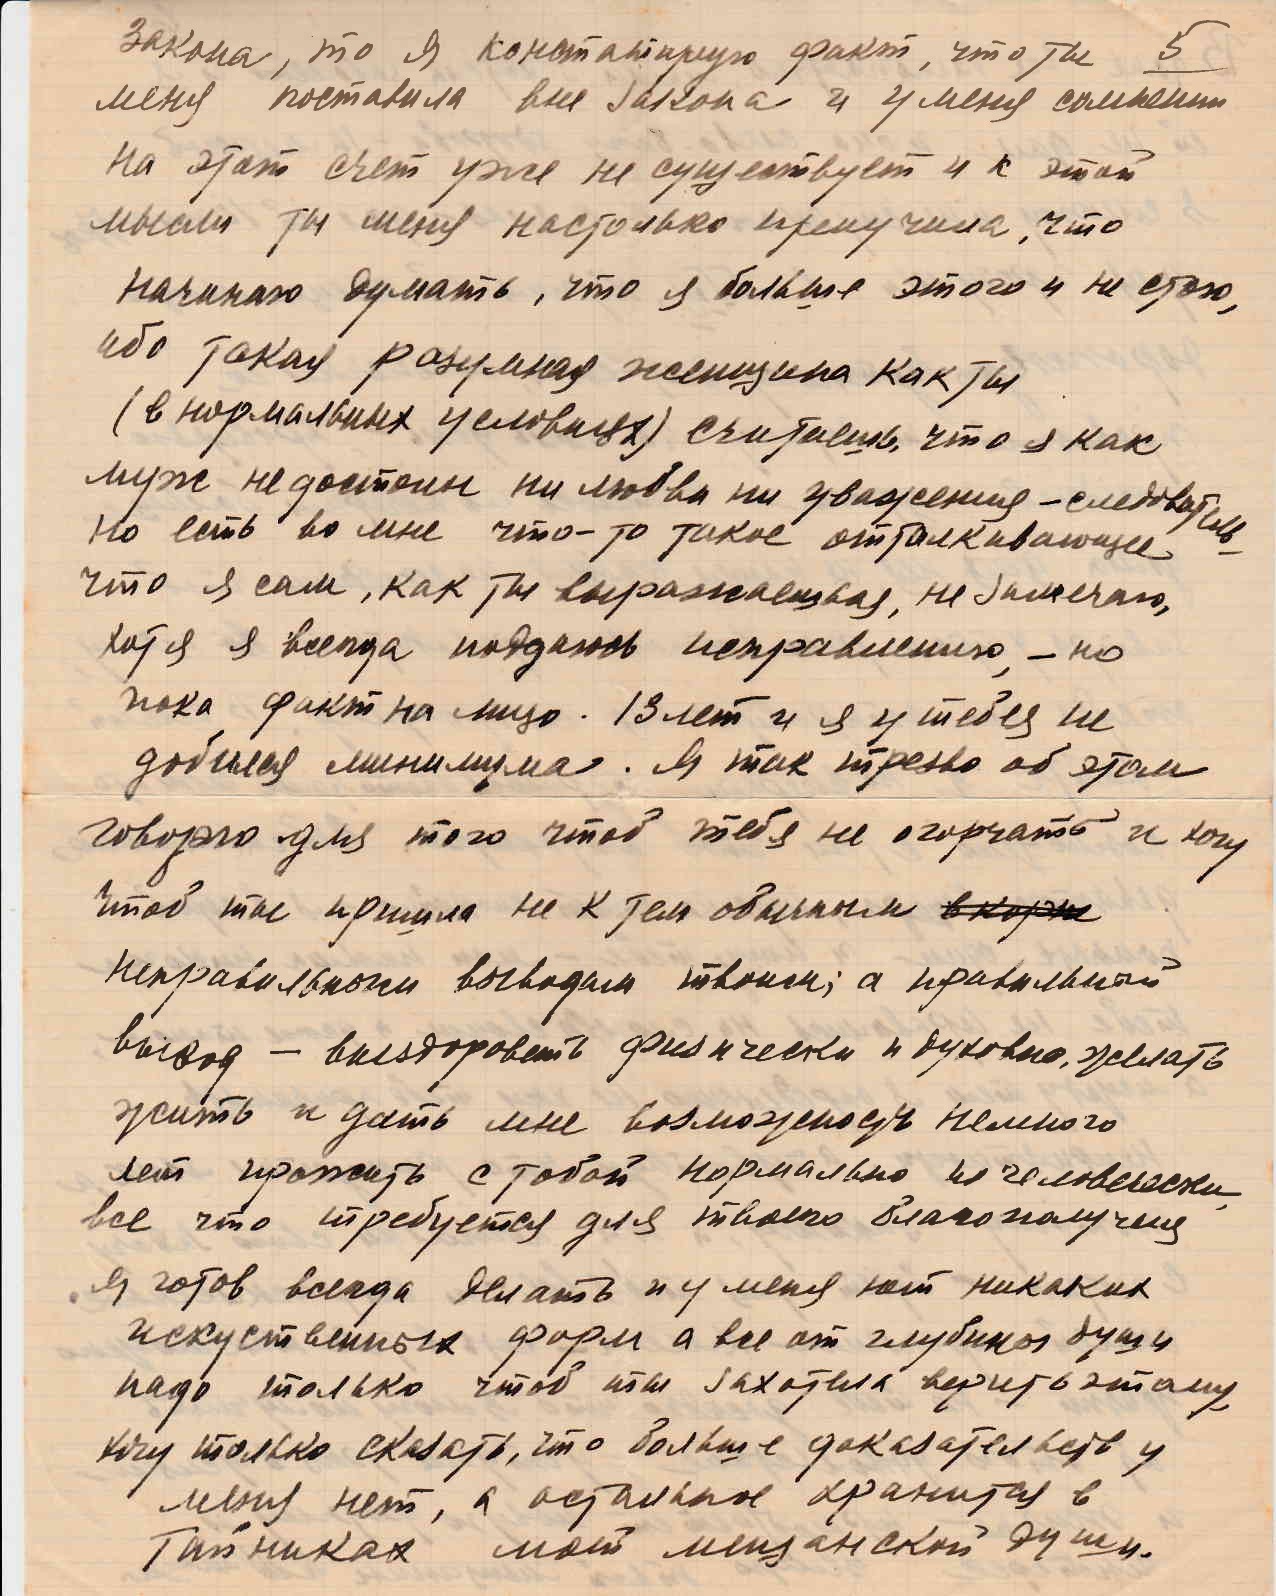 закона, то я констатирую факт, что ты 5
меня поставила вне закона и у меня сомнении
на этот счет уже не существует и к этой
мысли ты меня настолько приучила, что
начинаю думать, что я больше этого и не стою,
ибо такая разумная женщина как ты
(в нормальных условиях) считаешь, что я как
муж не достоин ни любви ни уважения – следователь-
но есть во мне что-то такое отталкивающее
что я сам, как ты выражаешься, не замечаю,
хотя я всегда поддаюсь исправлению, – но
пока факт на лицо. 13 лет и я у тебя не
добился минимума. Я так трезво об этом
говорю для того чтоб тебя не огорчать и хочу
чтоб ты пришла не к тем обычным в корне
неправильным выводам твоим; а правильный
выход – выздороветь физически и духовно, желать
жить и дать мне возможность немного
лет прожить с тобой нормально по человечески,
все что требуется для твоего благополучия
я готов всегда делать и у меня нет никаких
искуственных форм а все от глубины души
надо только чтоб ты захотела верить этому,
хочу только сказать, что больше доказательств у
меня нет, а остальное хранится в
тайниках моей мещанской души.